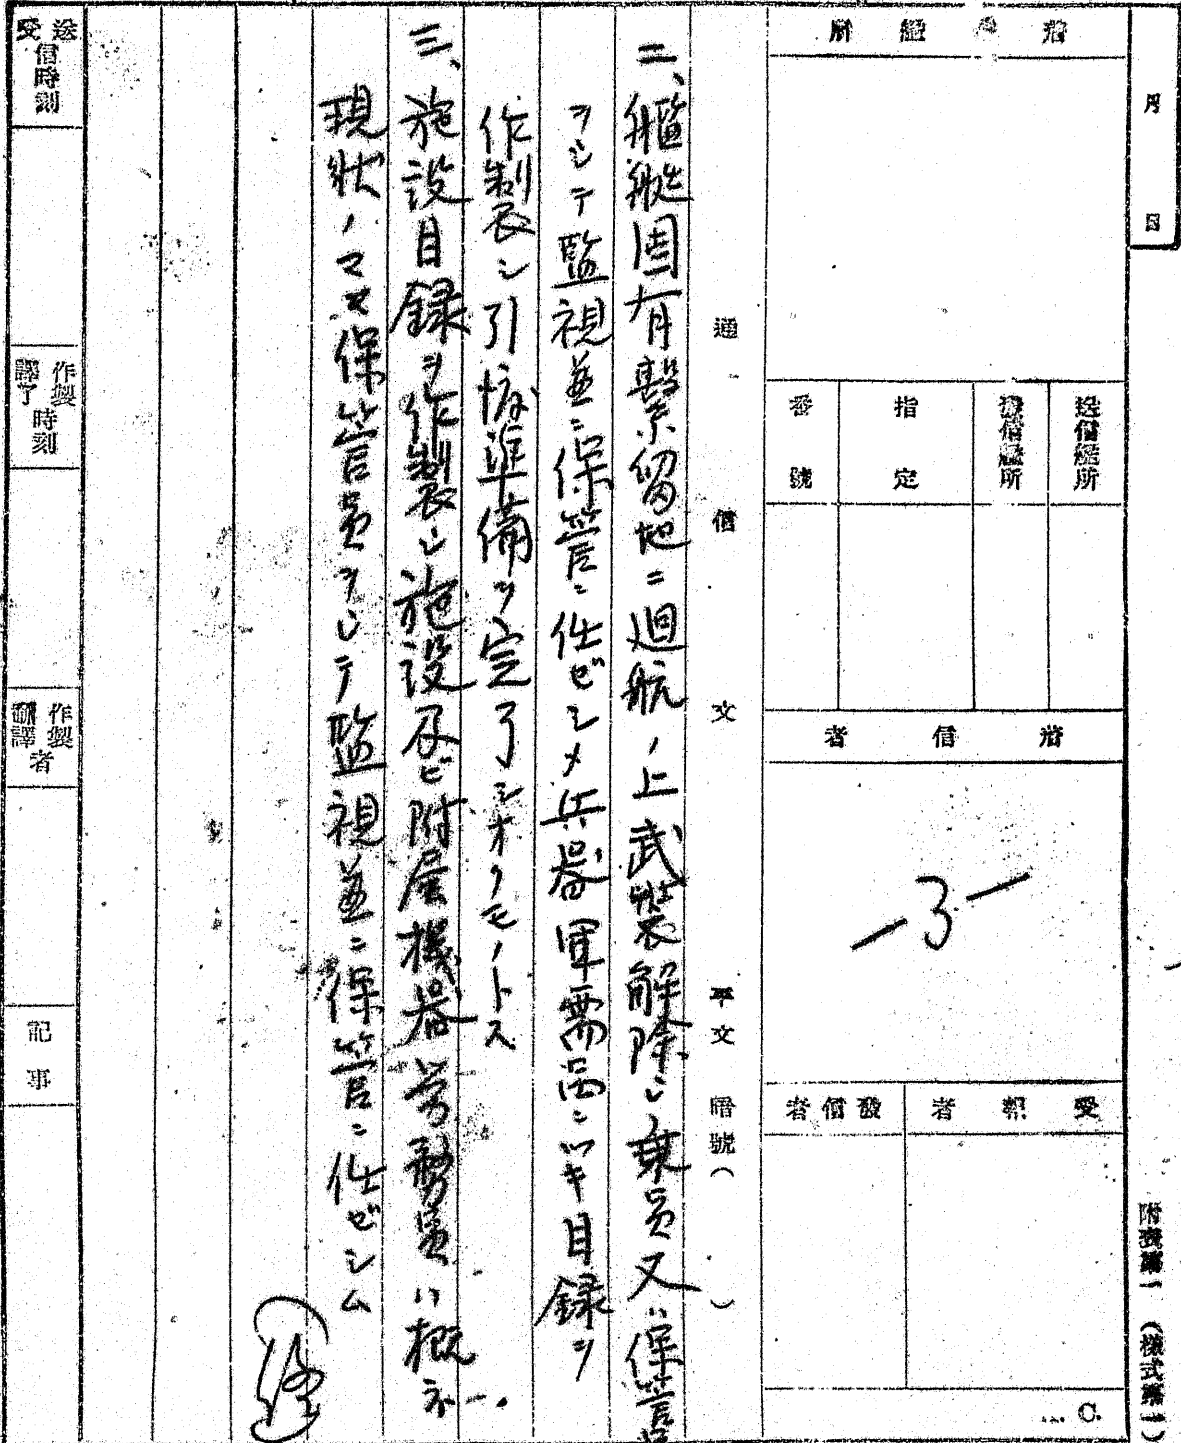 月 日
附表第一(樣式第一)
着信艦所
送信艦所
着信艦所
指定
番號
着信者
-3-
受報者
發信者
通信文 平文 暗號( )
二、艦艇固有繫留地ニ廻航ノ上武裝解除シ乘員又ハ保管員
ヲシテ監視並ニ保管ニ任ゼシメ兵器軍需品ニツキ目錄ヲ
作製シ引渡準備ヲ完了シオクモノトス
三、施設目錄ヲ作製シ施設及ビ附屬機器勞務員ハ概ネ
現狀ノママ保管員ヲシテ監視並ニ保管ニ任ゼシム
送受信時刻
作製譯了時刻
作製飜譯者
記事